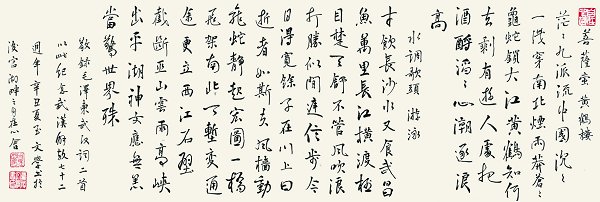 菩薩蛮 黃鶴樓
茫々九派流中國沉々
一綫穿南北煙雨莽蒼々
龜蛇鎖大江黃鶴知何
去剩有遊人處把
酒酹滔々心潮逐浪
高
水调歌頭 游泳
才飲長沙水又食武昌
魚萬里長江橫渡極
目楚天舒不管風吹浪
打勝似閒庭信步今
日得寬餘子在川上曰
逝者如斯夫風檣動
龜蛇靜起宏圖一橋
飛架南北天塹變通
途更立西江石壁
截斷巫山雲雨高峽
出平湖神女應無恙
當驚世界殊
敬録毛澤東武漢詞二首
以此纪念武漢解放七十二
週年辛丑夏文學書於
湖畔